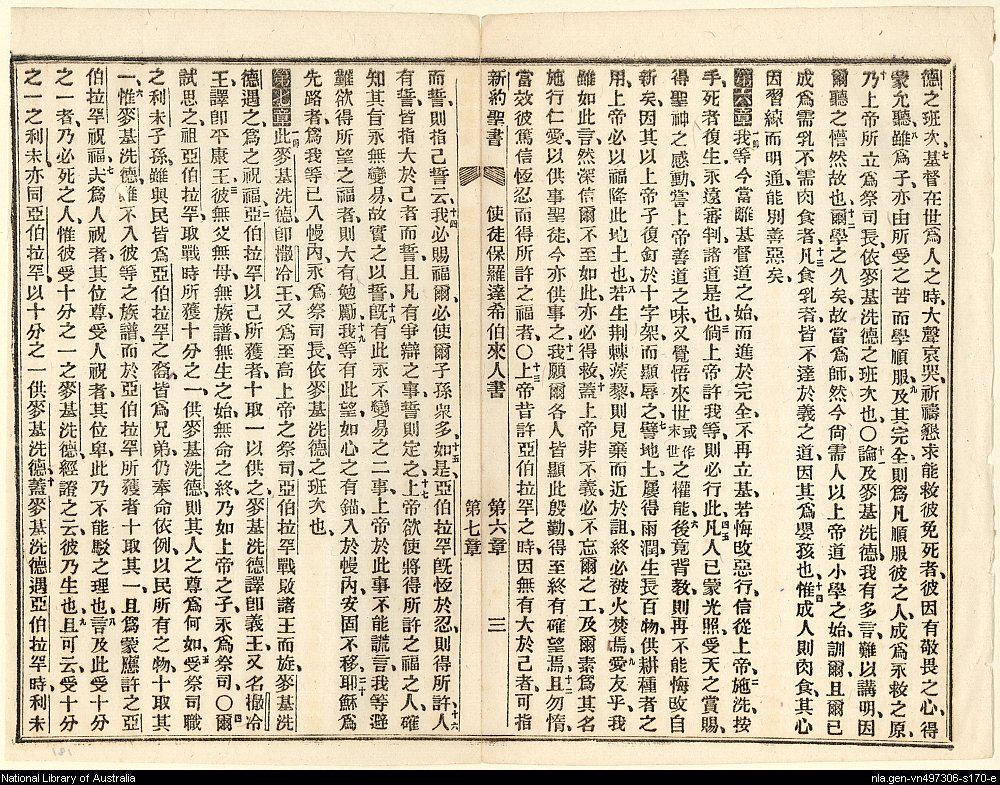 德之班次、七基督在世爲人之時、大聲哀哭、祈禱懇求能救彼免死者、彼因有敬畏之心、得
蒙允聽、八雖爲子、亦由所受之苦而學順服、九及其完全、則爲凡順服彼之人、成爲永救之原、
十乃上帝所立爲祭司長、依麥基洗德之班次也、〇十一論及麥基洗德、我有多言、難以講明、因
爾聽之懵然故也、十二爾學之久矣、故當爲師、然今尙需人以上帝道小學之始訓爾、且爾已
成爲需乳不需肉食者、十三凡食乳者、皆不達於義之道、因其爲嬰孩也、十四惟成人則肉食、其心
因習練而明通、能別善惡矣、
第六章一節我等今當離基督道之始、而進於完全、不再立基、若悔改惡行、信從上帝、二施洗、按
手、死者復生、永遠審判諸道是也、三倘上帝許我等、則必行此、四五凡人已蒙光照、受天之賞賜、
得聖神之感動、嘗上帝善道之味、又覺悟來世或作末世之權能、六後竟背教、則再不能悔改自
新矣、因其以上帝子復釘於十字架而顯辱之、七譬地土、屢得雨潤、生長百物、供耕種者之
用、上帝必以福降此地土也、八若生荆棘蒺藜、則見棄而近於詛、終必被火焚焉、九愛友乎、我
雖如此言、然深信爾不至如此、亦必得救、十蓋上帝非不義、必不忘爾之工、及爾素爲其名
施行仁愛、以供事聖徒、今亦供事之、十一我願爾各人皆顯此殷勤、得至終有確望焉、十二且勿惰、
當效彼篤信恆忍而得所許之福者、〇十三上帝昔許亞伯拉罕之時、因無有大於己者可指
新約聖書 使徒保羅達希伯來人書 第六章 第七章 三
而誓、則指己誓云、十四我必賜福爾、必使爾子孫衆多、十五如是亞伯拉罕旣恆於忍、則得所許、十六人
有誓、皆指大於己者而誓、且凡有爭辯之事、誓則定之、十七上帝欲使將得所許之福之人、確
知其旨永無變易、故實之以誓、十八旣有此永不變易之二事、上帝於此事不能謊言、我等避
難欲得所望之福者、則大有勉勵、十九我等有此望、如心之有錨、入於幔內、安固不移、二十耶穌爲
先路者、爲我等已入幔內、永爲祭司長、依麥基洗德之班次也、
第七章一節此麥基洗德、卽撒冷王、又爲至高上帝之祭司、亞伯拉罕戰敗諸王而旋、麥基洗
德遇之、爲之祝福、二亞伯拉罕以己所獲者、十取一以供之、麥基洗德譯卽義王、又名撒冷
王、譯卽平康王、三彼無父無母、無族譜、無生之始、無命之終、乃如上帝之子、永爲祭司、〇四爾
試思之、祖亞伯拉罕取戰時所獲十分之一、供麥基洗德、則其人之尊爲何如、五受祭司職
之利未子孫、雖與民皆爲亞伯拉罕之裔、皆爲兄弟、仍奉命依例、以民所有之物、十取其
一、六惟麥基洗德雖不入彼等之族譜、而於亞伯拉罕所獲者十取其一、且爲蒙應許之亞
伯拉罕祝福、七夫爲人祝者其位尊、受人祝者其位卑、此乃不能駁之理也、八言及此受十分
之一者、乃必死之人、惟彼受十分之一之麥基洗德、經證之云、彼乃生也、九且可云、受十分
之一之利未、亦同亞伯拉罕、以十分之一供麥基洗德、十蓋麥基洗德遇亞伯拉罕時、利未
National Library of Australia
nla.gen-vn497306-s170-e